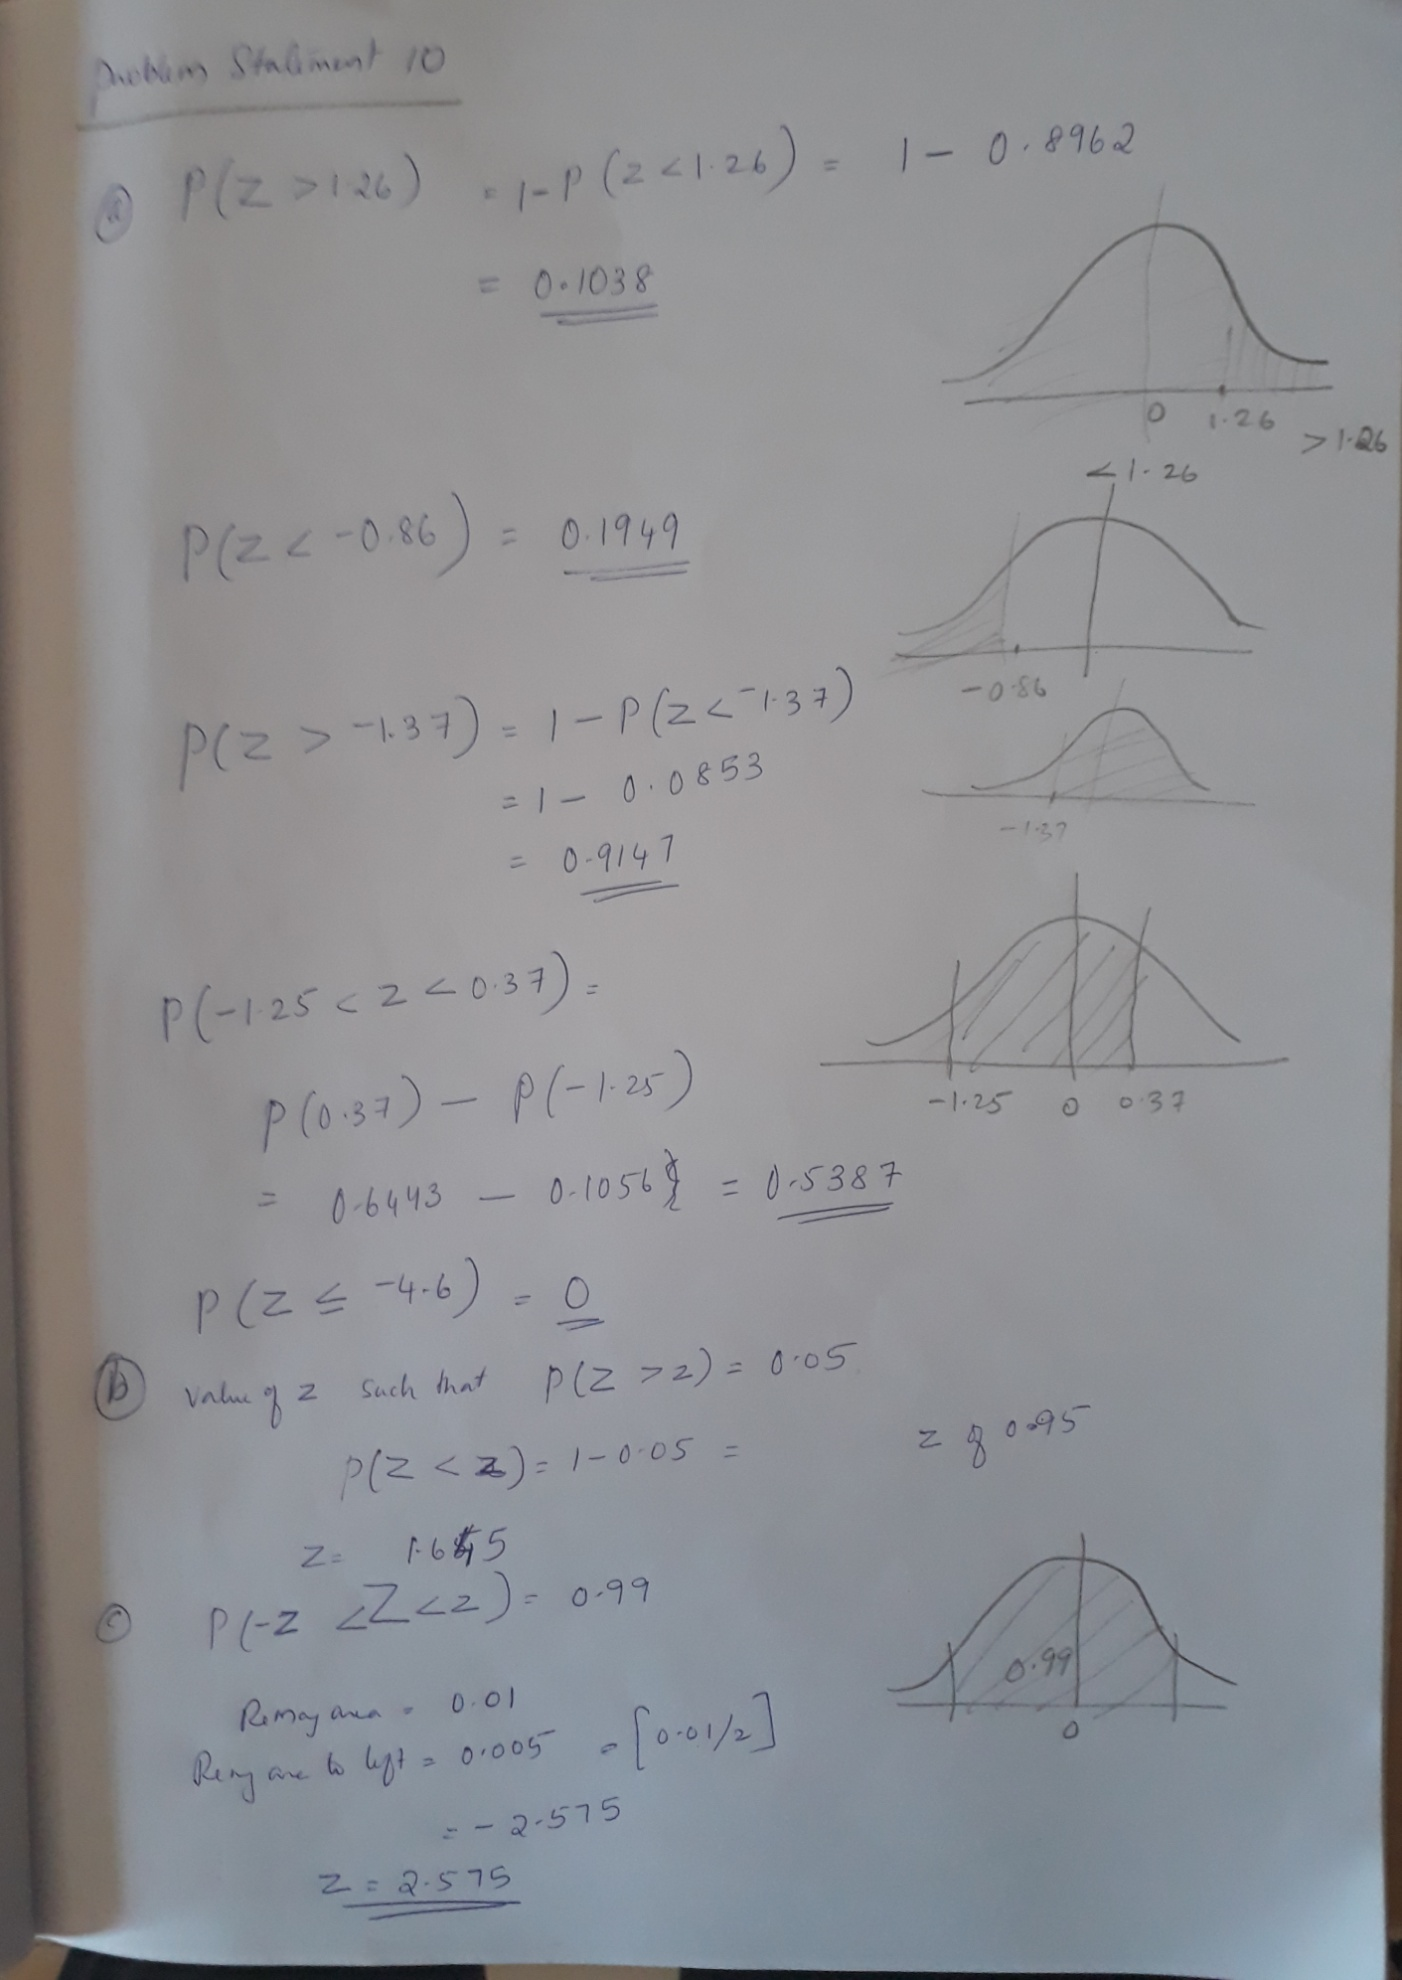 Problem Statement 10
(a) P(Z > 1.26) = 1-P(z < 1.26) = 1 - 0.8962
= 0.1038
0 1.26 > 1.26
< 1.26
P(Z < -0.86) = 0.1949
-0.86
P(Z > -1.37) = 1 - P(Z < -1.37)
= 1 - 0.0853
= 0.9147
-1.37
P(-1.25 < Z < 0.37) =
-1.25 0 0.37
P(0.37) - P(-1.25)
= 0.6443 - 0.1056 = 0.5387
P(Z ≤ -4.6) = 0
(b) Value of z such that P(Z > z) = 0.05
P(Z < z) = 1 - 0.05 = z of 0.95
z = 1.645
(c) P(-z < Z < z) = 0.99
0.99
0
area = 0.01
to left = 0.005 = [0.01/2]
= -2.575
z = 2.575